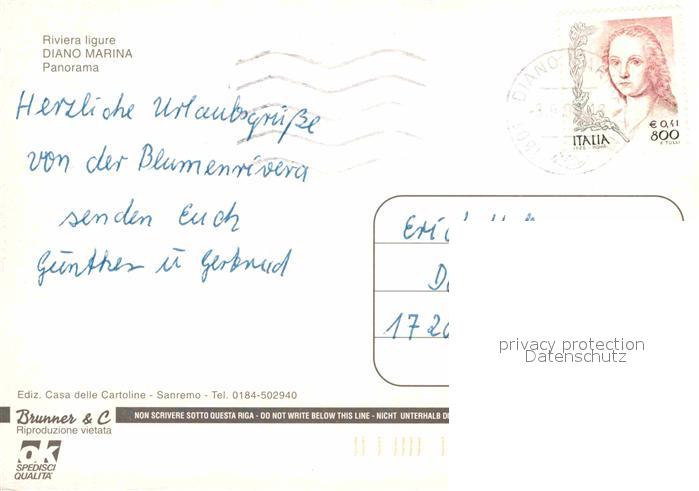 Riviera ligure
DIANO MARINA
Panorama
€ 0,41
800
ITALIA
Herzliche Urlaubsgrüße
von der Blumenrivera
senden Euch
Günther u Gertrud
17 20
privacy protection
Datenschutz
Ediz. Casa delle Cartoline - Sanremo - Tel. 0184-502940
Brunner & C
Riproduzione vietata
NON SCRIVERE SOTTO QUESTA RIGA - DO NOT WRITE BELOW THIS LINE - NICHT UNTERHALB
ok
SPEDISCI
QUALITA'